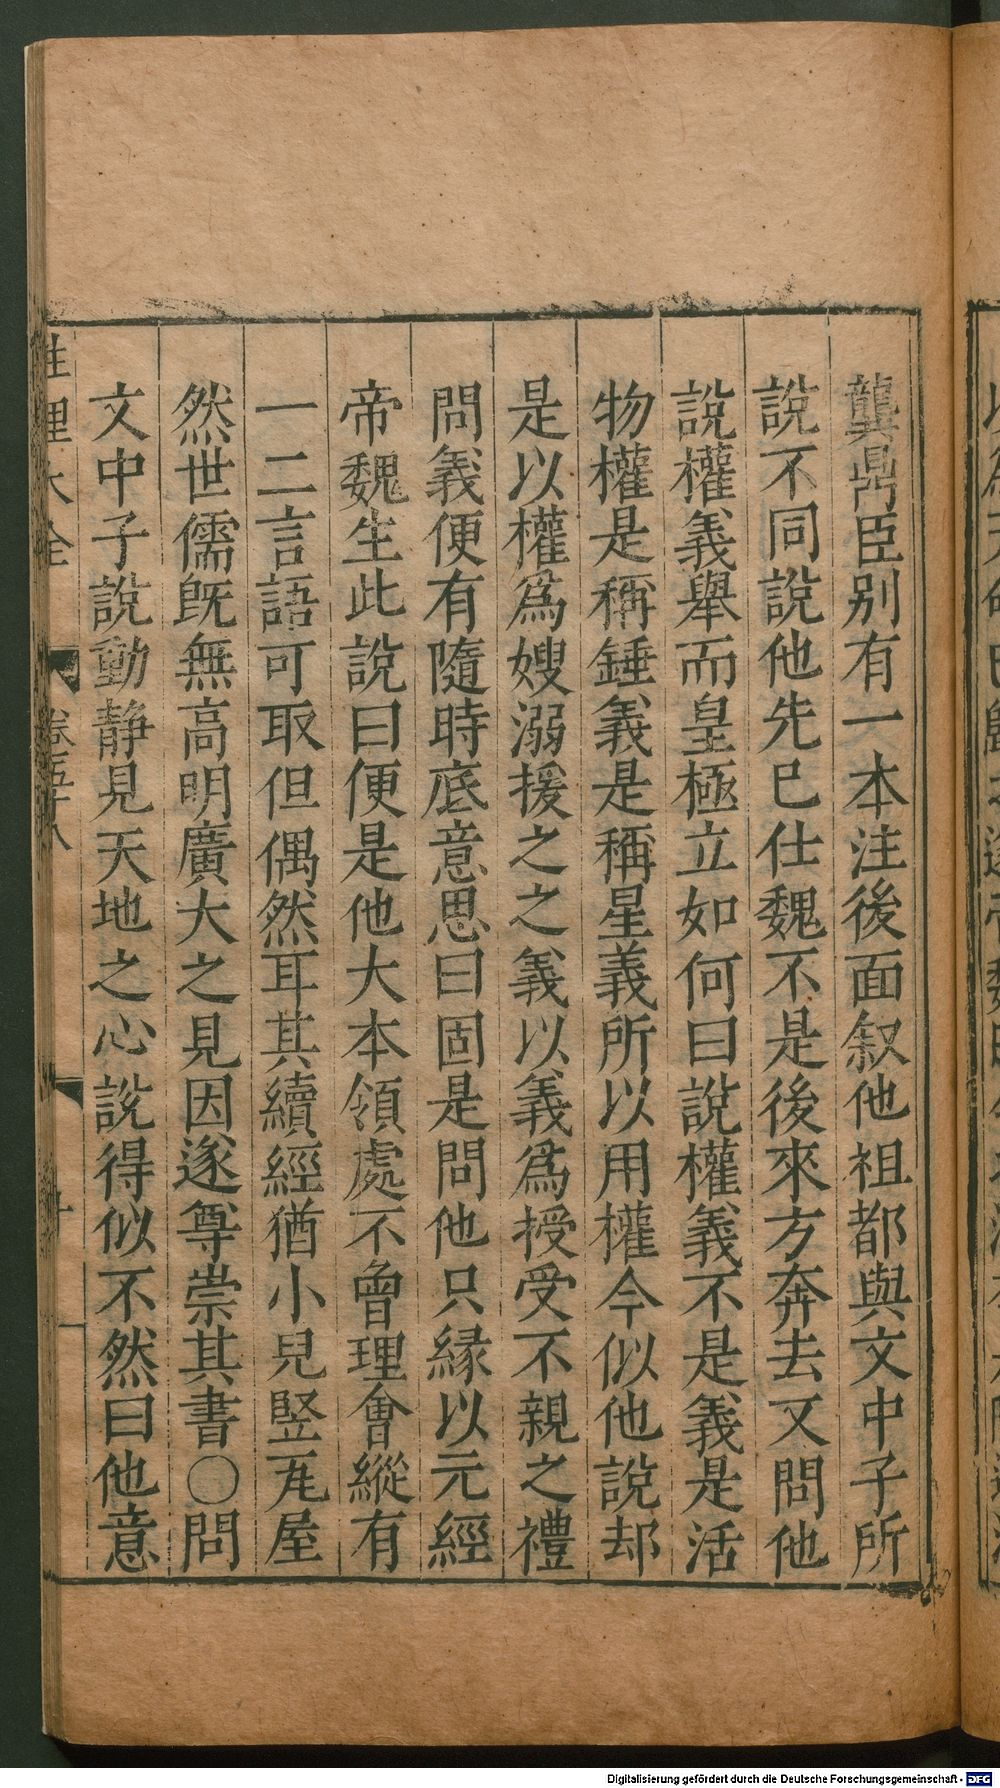 龔鼎臣别有一本注後面叙他祖都與文中子所
說不同說他先已仕魏不是後來方奔去又問他
說權義舉而皇極立如何曰說權義不是義是活
物權是稱錘義是稱星義所以用權今似他說却
是以權爲嫂溺援之之義以義爲授受不親之禮
問義便有隨時底意思曰固是問他只縁以元經
帝魏生此說曰便是他大本領處不曾理會縱有
一二言語可取但偶然耳其續經猶小兒竪瓦屋
然世儒旣無高明廣大之見因遂尊崇其書○問
文中子說動靜見天地之心說得似不然曰他意
性理大全 卷五十八
Digitalisierung gefördert durch die Deutsche Forschungsgemeinschaft - DFG